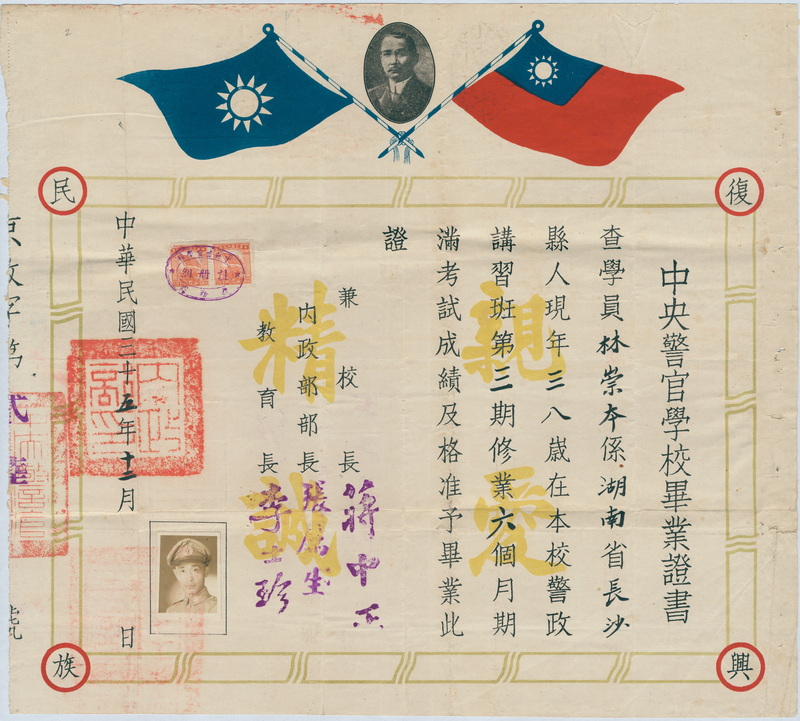 中央警官學校畢業證書
查學員林崇本係湖南省長沙
縣人現年三八歲在本校警政
講習班第三期修業六個月期
滿考試成績及格准予畢業此
證
兼校長蔣中正
內政部部長張厲生
教育長李士珍
中華民國三十五年十二月 日
復
興
民
族
親
愛
精
誠
號